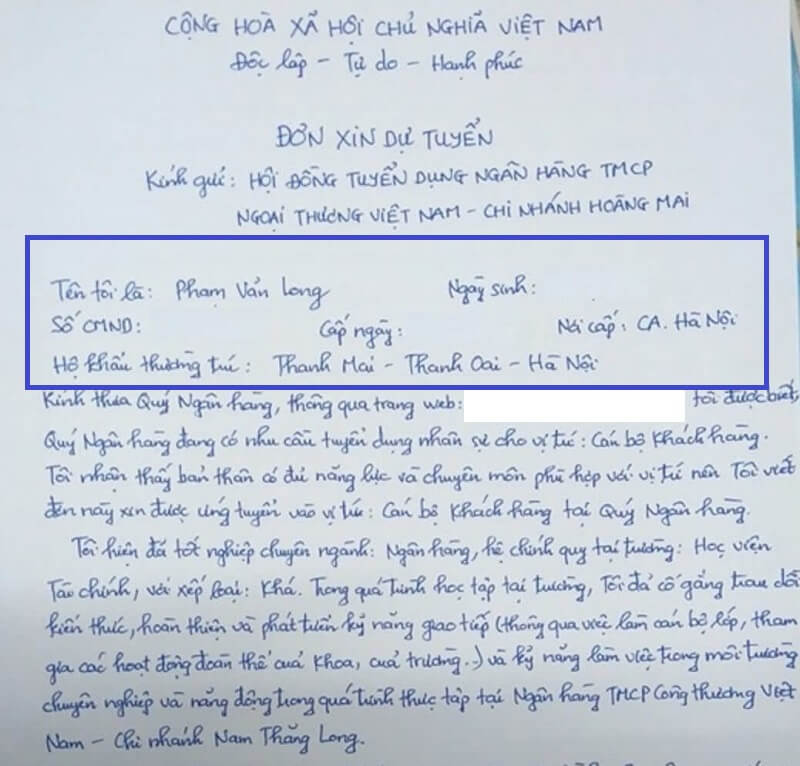 CỘNG HOÀ XÃ HỘI CHỦ NGHĨA VIỆT NAM
Độc lập - Tự do - Hạnh phúc
ĐƠN XIN DỰ TUYỂN
Kính gửi: HỘI ĐỒNG TUYỂN DỤNG NGÂN HÀNG TMCP
NGOẠI THƯƠNG VIỆT NAM - CHI NHÁNH HOÀNG MAI
Tên tôi là: Phạm Văn Long Ngày sinh:
Số CMND: Cấp ngày: Nơi cấp: CA. Hà Nội
Hộ khẩu thường trú: Thanh Mai - Thanh Oai - Hà Nội
Kính thưa Quý Ngân hàng, thông qua trang web: tôi được biết,
Quý Ngân hàng đang có nhu cầu tuyển dụng nhân sự cho vị trí: Cán bộ Khách hàng.
Tôi nhận thấy bản thân có đủ năng lực và chuyên môn phù hợp với vị trí nên Tôi viết
đơn này xin được ứng tuyển vào vị trí: Cán bộ Khách hàng tại Quý Ngân hàng.
Tôi hiện đã tốt nghiệp chuyên ngành: Ngân hàng, hệ chính quy tại trường: Học viện
Tài chính, với xếp loại: Khá. Trong quá trình học tập tại trường, Tôi đã cố gắng trau dồi
kiến thức, hoàn thiện và phát triển kỹ năng giao tiếp (thông qua việc làm cán bộ lớp, tham
gia các hoạt động đoàn thể của khoa, của trường..) và kỹ năng làm việc trong môi trường
chuyên nghiệp và năng động trong quá trình thực tập tại Ngân hàng TMCP Công thương Việt
Nam - Chi nhánh Nam Thăng Long.